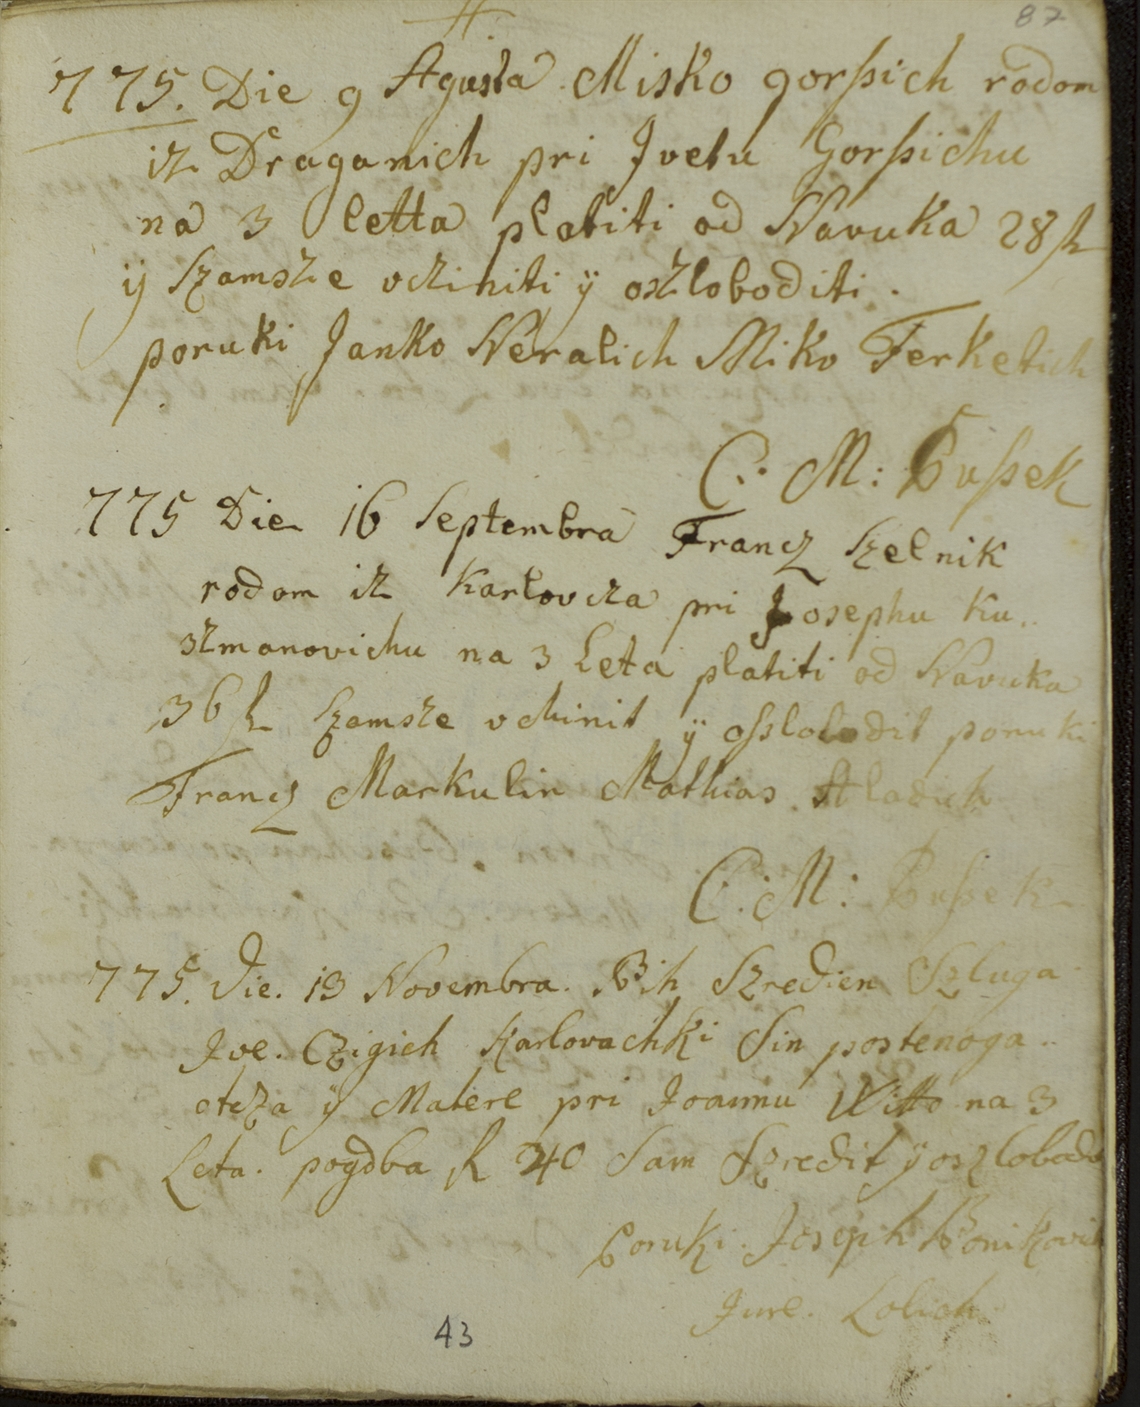 87
775. Die 9 Agusta Misko gorßich rodom
iz Draganich pri Ivetu Gorßichu
na 3 letta platiti od Navuka 28 f
ÿ szamsze vcziniti ÿ oszloboditi.
poruki Janko Neralich Miko Ferketich
C. M: Pußek
775 Die 16 Septembra Francz Szelnik
rodom iz Karlovcza pri Josephu Ku..
szmanovichu na 3 Leta platiti od Navuka
36 f szamsze vchinit ÿ oßlobodit poruki
Francz Markulin Mathias Mladich
C. M: Pußek
775. Die. 13 Novembra. Bih Szredien Szluga
Ive. Czigich Karlovachki Sin postenoga..
otcza ÿ Matere pri Joannu Witto na 3
Leta. pogdba f 40 Sam Szredit ÿ oszlobod
Poruki. Joseph Bonikovi
Jure. Lolich
43